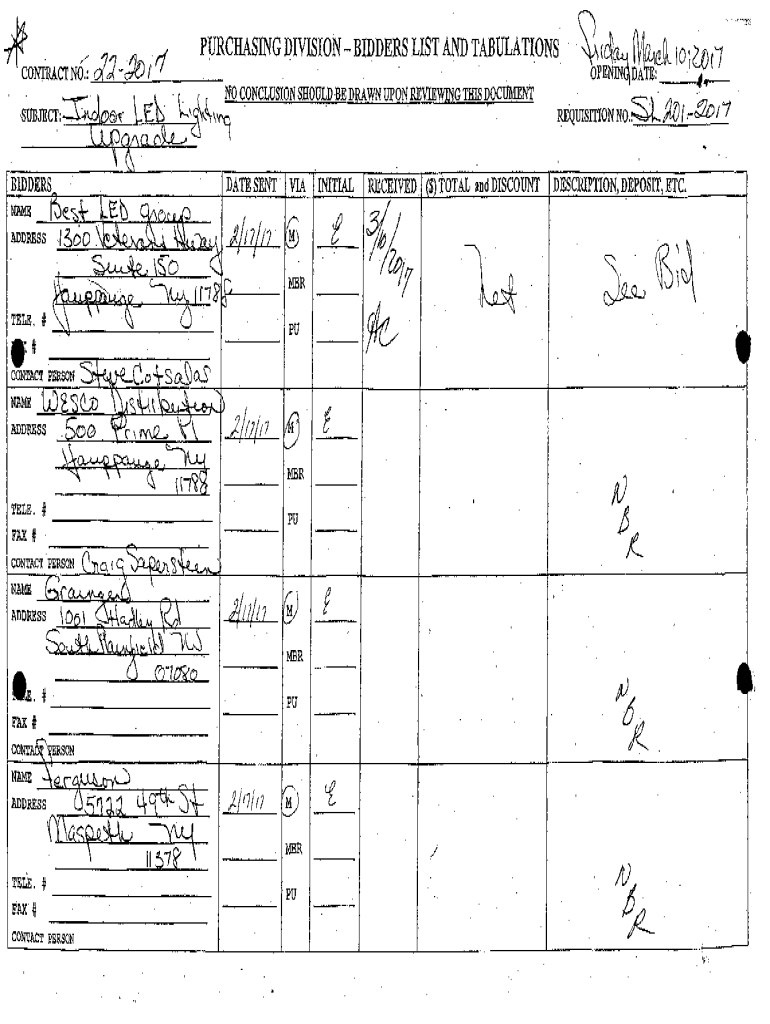 PURCHASING DIVISION – BIDDERS LIST AND TABULATIONS
Friday March 10, 2017
CONTRACT NO.: 22-2017
OPENING DATE:
NO CONCLUSION SHOULD BE DRAWN UPON REVIEWING THIS DOCUMENT
SUBJECT: Indoor LED Lighting
Upgrade
REQUISITION NO.: SL 201-2017
BIDDERS DATE SENT VIA INITIAL RECEIVED ($) TOTAL and DISCOUNT DESCRIPTION, DEPOSIT, ETC.
NAME Best LED Group
ADDRESS 1300 Veterans Hwy 2/17/17 M E 3/10/2017
Suite 150
Net See Bid
Hauppauge Ny 11788
MBR
TELE. #
PU AC
#
CONTACT PERSON Steve Cotsalas
NAME WESCO Distribution
ADDRESS 500 Prime Pl 2/17/17 M E
Hauppauge Ny
11788
MBR
NBR
TELE. #
PU
FAX #
CONTACT PERSON Craig Saperstein
NAME Grainger
ADDRESS 1001 Hadley Rd 2/17/17 M E
South Plainfield NJ
07080
MBR
NBR
TELE. #
PU
FAX #
CONTACT PERSON
NAME Ferguson
ADDRESS 5722 49th St 2/17/17 M E
Maspeth Ny
11378
MBR
NBR
TELE. #
PU
FAX #
CONTACT PERSON